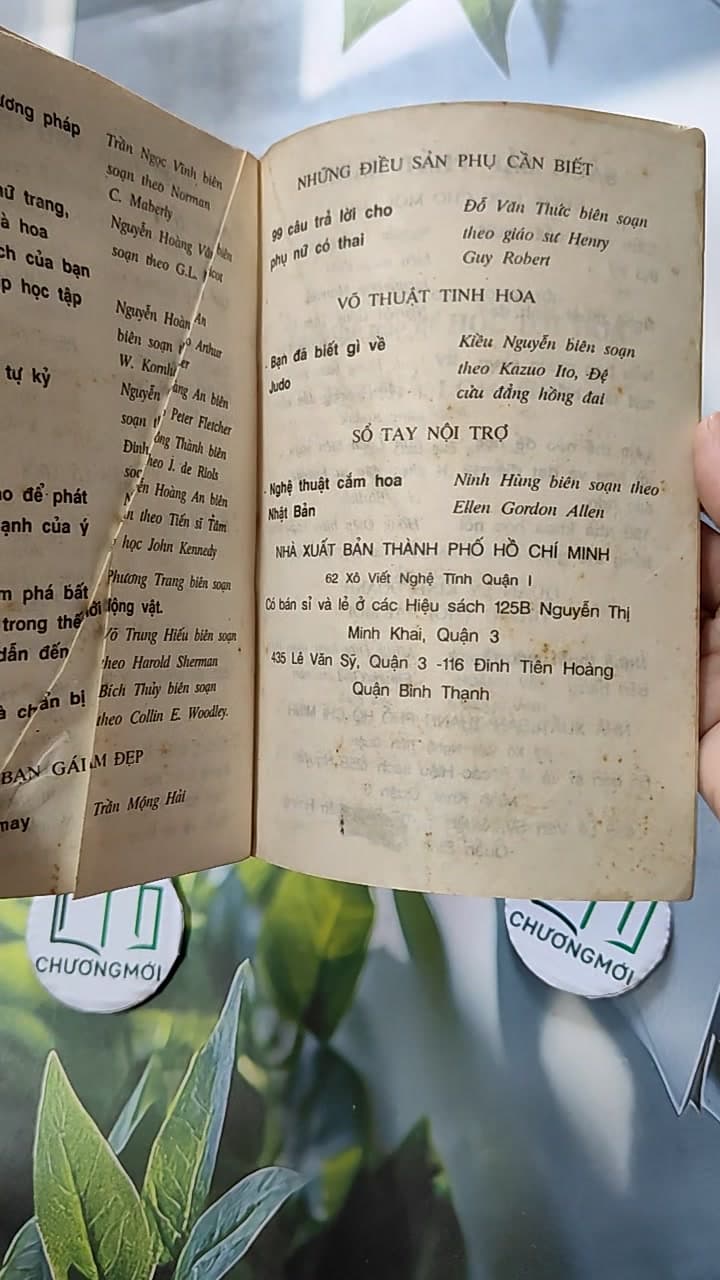 ương pháp
Trần Ngọc Vĩnh biên
soạn theo Norman
C. Maberly
trang,
Nguyễn Hoàng biên
à hoa
soạn theo G.L.
ch của bạn
p học tập
Nguyễn Hoàn An
biên soạn Arthur
W.
tự kỷ
Nguyễn An biên
soạn Peter Fletcher
Đinh Thành biên
J. de Riols
o để phát
Hoàng An biên
ạnh của ý
theo Tiến sĩ Tâm
học John Kennedy
m phá bất
Phương Trang biên soạn
trong thế động vật.
Võ Trung Hiếu biên soạn
dẫn đến
theo Harold Sherman
à chẩn bị
Bích Thủy biên soạn
theo Collin E. Woodley.
BẠN GÁI ĐẸP
may
Trần Mộng Hải
NHỮNG ĐIỀU SẢN PHỤ CẦN BIẾT
99 câu trả lời cho Đỗ Văn Thức biên soạn
phụ nữ có thai theo giáo sư Henry
Guy Robert
VÕ THUẬT TINH HOA
. Bạn đã biết gì về Kiều Nguyễn biên soạn
Judo theo Kazuo Ito, Đệ
cửu đẳng hồng đai
SỔ TAY NỘI TRỢ
. Nghệ thuật cắm hoa Ninh Hùng biên soạn theo
Nhật Bản Ellen Gordon Allen
NHÀ XUẤT BẢN THÀNH PHỐ HỒ CHÍ MINH
62 Xô Viết Nghệ Tĩnh Quận I
Có bán sỉ và lẻ ở các Hiệu sách 125B Nguyễn Thị
Minh Khai, Quận 3
435 Lê Văn Sỹ, Quận 3 -116 Đinh Tiên Hoàng
Quận Bình Thạnh
CHƯƠNGMỚI
CHƯƠNGMỚI